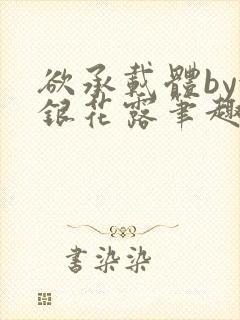 欲承載體by
銀花露筆趣
書染染